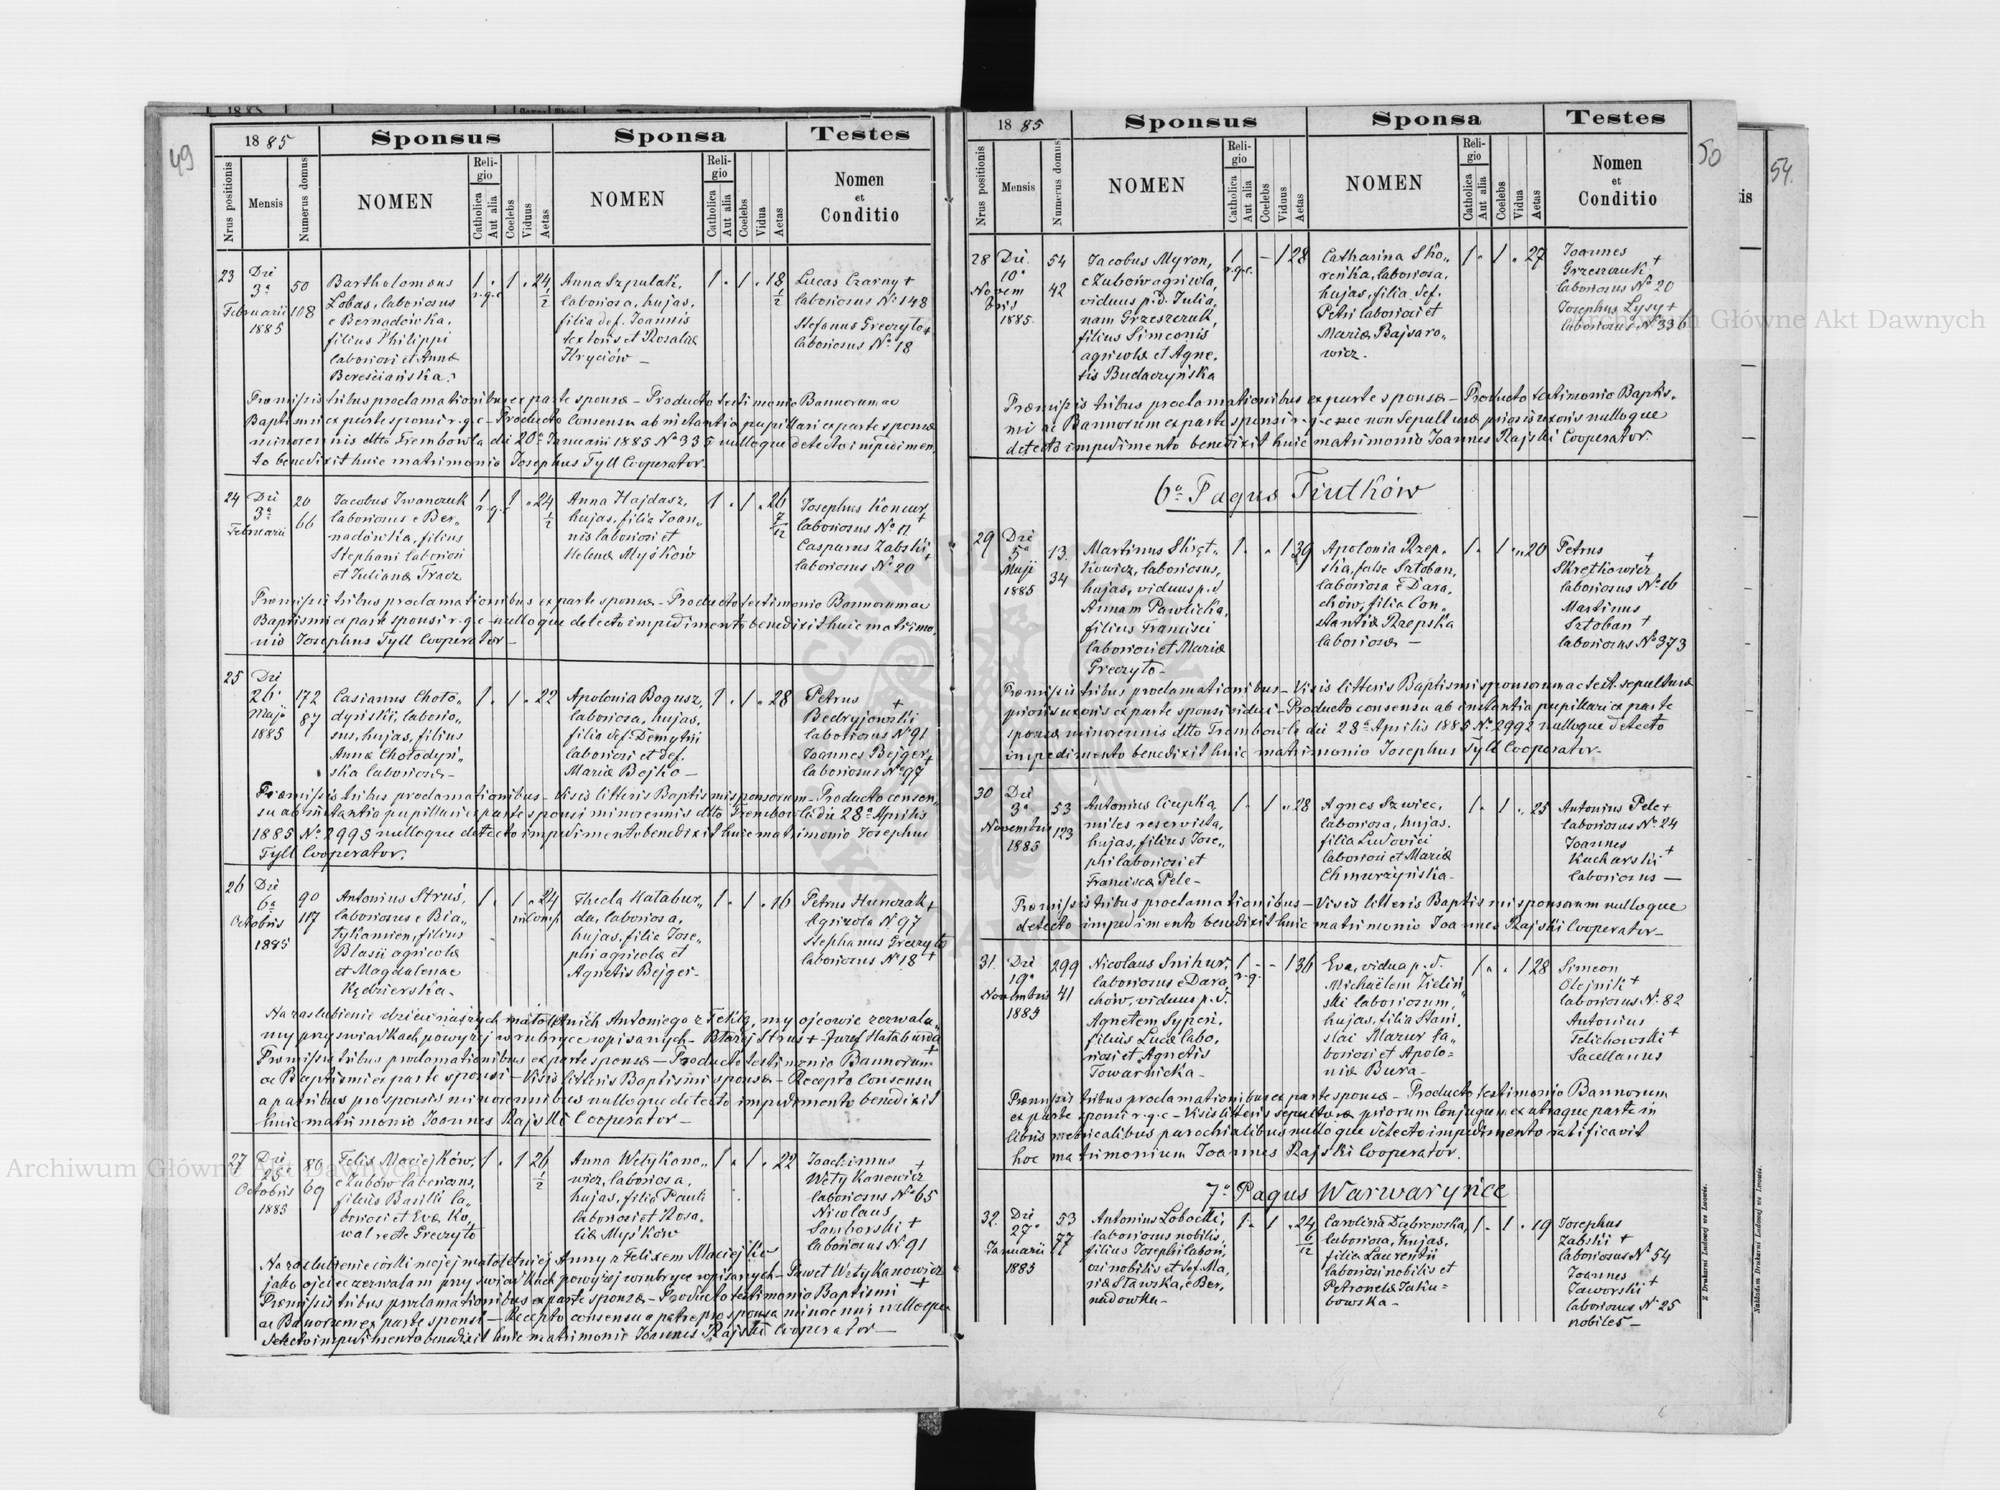 49
1885
Sponsus
Sponsa
Testes
Nrus positionis
Mensis
Numerus domus
NOMEN
Religio
Catholica
Aut alia
Coelebs
Viduus
Aetas
NOMEN
Religio
Catholica
Aut alia
Coelebs
Vidua
Aetas
Nomen
et
Conditio
23
Die
3a
Februarii
1885
50
108
Bartholomeus
Łobas, laboriosus
e Bernadówka,
filius Philippi
laboriosi et Annæ
Bereściańska.
1
r.g.c
1 24 1/2
Anna Szpulak,
laboriosa, hujas,
filia def. Joannis
textoris et Rosaliæ
Hryciów –
1 1 18 1/2
Lucas Czarny +
laboriosus No 148
Stefanus Greczyło +
laboriosus No 18
Præmissis tribus proclamationibus ex parte sponsæ – Producto testimonio Bannorum ac
Baptismi ex parte sponsi r.g.c – Producto Consensu ab instantia pupillari ex parte sponsæ
minorennis dtto Trembowla die 20a Januarii 1885 No 335 nulloque detecto impedimen
to benedixit huic matrimonio Josephus Tyll Cooperator.
24
Die
3a
Februarii
20
66
Jacobus Iwanczuk
laboriosus e Ber-
nadówka, filius
Stephani laboriosi
et Julianæ Tracz
1
r.g.c
1 24 1/2
Anna Hajdasz,
hujas, filia Joan-
nis laboriosi et
Helenæ Myśków
1 1 26 7/12
Josephus Koncur +
laboriosus No 11
Casparus Zabski +
laboriosus No 20
Præmissis tribus proclamationibus ex parte sponsæ – Producto testimonio Bannorum ac
Baptismi ex parte sponsi r.g.c nulloque detecto impedimento benedixit huic matrimo-
nio Josephus Tyll Cooperator –
25
Die
26a
Maji
1885
172
87
Casianus Choło-
dyński, laborio-
sus, hujas, filius
Annæ Chołodyń-
ska laboriosæ –
1 1 22
Apolonia Bogusz,
laboriosa, hujas,
filia def Demytrii
laboriosi et def.
Mariæ Bojko –
1 1 28
Petrus +
Bedryjowski
laboriosus No 91
Joannes Bejger +
laboriosus No 97
Præmissis tribus proclamationibus – Visis litteris Baptismi sponsorum – Producto consen-
su ab instantia pupillari ex parte sponsi minorennis dtto Trembowla die 28a Aprilis
1885 No 2995 nulloque detecto impedimento benedixit huic matrimonio Josephus
Tyll Cooperator.
26
Die
6a
Octobris
1885
90
117
Antonius Struś,
laboriosus e Bia-
łykamien, filius
Blasii agricolæ
et Magdalenæ
Kędzierska –
1 1 24
Thecla Katabur-
da, laboriosa,
hujas, filia Jose-
phi agricolæ et
Agnetis Bejger –
1 1 16
Petrus Hunczak +
Agricola No 97
Stephanus Greczyło
laboriosus No 18 +
Na zaslubienie dzieci naszych małoletnich Antoniego z Teklą, my ojcowie zezwala-
my przy swiadkach powyżej w rubryce wpisanych – Błażej Struś + Jozef Kataburda
Præmissis tribus proclamationibus ex parte sponsæ – Producto testimonio Bannorum
ac Baptismi ex parte sponsi – Visis litteris Baptismi sponsæ – Recepto Consensu
a patribus pro sponsis minorennibus nulloque detecto impedimento benedixit
huic matrimonio Joannes Rajski Cooperator –
27
Die
25
Octobris
1885
86
69
Felix Maciejków,
e Zubów laboriosus,
filius Basilii la-
boriosi et Evæ Ko-
wal recte Greczyło
1 1 26 1/2
Anna Wełykano-
wicz, laboriosa,
hujas, filia Pauli
laboriosi et Rosa-
liæ Myśków
1 1 22
Joachimus +
Wełykanowicz
laboriosus No 65
Nicolaus
Samborski +
laboriosus No 91
Na zaslubienie córki mojej małoletniej Anny z Felixem Maciejków
jako ojciec zezwalam przy swiadkach powyżej w rubryce wpisanych – Paweł Wełykanowicz +
Præmissis tribus proclamationibus ex parte sponsæ – Producto testimonio Baptismi
ac Bannorum ex parte sponsi – Recepto consensu a patre pro sponsa minorenni nulloque
detecto impedimento benedixit huic matrimonio Joannes Rajski Cooperator –
50
54.
1885
Sponsus
Sponsa
Testes
Nrus positionis
Mensis
Numerus domus
NOMEN
Religio
Catholica
Aut alia
Coelebs
Viduus
Aetas
NOMEN
Religio
Catholica
Aut alia
Coelebs
Vidua
Aetas
Nomen
et
Conditio
28
Die
10a
Novem
bris
1885.
54
42
Jacobus Myron,
e Zubów agricola,
viduus p.d. Julia-
nam Grzeszczuk,
filius Simeonis
agricolæ et Agne-
tis Budaczyńska
1
r.g.c.
– 1 28
Catharina Sko-
reńka, laboriosa,
hujas, filia def.
Petri laboriosi et
Mariæ Bajsaro-
wicz.
1 1 27
Joannes +
Grzeszczuk
laboriosus No 20
Josephus Lysy +
laboriosus No 336
Præmissis tribus proclamationibus ex parte sponsæ – Producto testimonio Baptis-
mi ac Bannorum ex parte sponsi r.g.c nec non Sepulturæ prioris uxoris nulloque
detecto impedimento benedixit huic matrimonio Joannes Rajski Cooperator.
6o Pagus Tiutków
29
Die
5a
Maji
1885
13.
34
Martinus Skręt-
kowicz, laboriosus,
hujas, viduus p.d
Annam Pawlicka,
filius Francisci
laboriosi et Mariæ
Greczyło –
1 1 39
Apolonia Rzep-
ska, false Sztoban,
laboriosa e Dara-
chów, filia Con-
stantiæ Rzepska
laboriosæ –
1 1 20
Petrus +
Skrętkowicz
laboriosus No 16
Martinus
Sztoban +
laboriosus No 373
Præmissis tribus proclamationibus – Visis litteris Baptismi sponsorum ac test. sepulturæ
prioris uxoris ex parte sponsi vidui – Producto consensu ab instantia pupillari ex parte
sponsæ minorennis dtto Trembowla die 28a Aprilis 1885 No 2992 nulloque detecto
impedimento benedixit huic matrimonio Josephus Tyll Cooperator –
30
Die
3a
Novembris
1885
53
123
Antonius Ciupka
miles reservista,
hujas, filius Jose-
phi laboriosi et
Franciscæ Pele –
1 1 28
Agnes Szwiec,
laboriosa, hujas,
filia Ludovici
laboriosi et Mariæ
Chmurzyńska –
1 1 25
Antonius Pele +
laboriosus No 24
Joannes
Kucharski +
laboriosus –
Præmissis tribus proclamationibus – Visis litteris Baptismi sponsorum nulloque
detecto impedimento benedixit huic matrimonio Joannes Rajski Cooperator –
31.
Die
19a
Novembris
1885
299
41
Nicolaus Snihur,
laboriosus e Dara-
chów, viduus p.d.
Agnetem Sypeń,
filius Lucæ labo-
riosi et Agnetis
Towarnicka –
1
r.g.
– – 1 36
Eva, vidua p.d.
Michaëlem Zieliń-
ski laboriosum,
hujas, filia Stani-
slai Mazur la-
boriosi et Apolo-
niæ Bura –
1 1 28
Simeon
Olejnik +
laboriosus No 82
Antonius
Telichowski +
Sacellanus
Præmissis tribus proclamationibus ex parte sponsæ – Producto testimonio Bannorum
ex parte sponsi r.g.c – Visis litteris sepulturæ priorum Conjugum ex utraque parte in
libris metricalibus parochialibus nulloque detecto impedimento ratificavit
hoc matrimonium Joannes Rajski Cooperator.
7o Pagus Warwaryńce
32.
Die
27a
Januarii
1885
53
77
Antonius Łobocki,
laboriosus nobilis,
filius Josephi labori-
osi nobilis et def. Ma-
riæ Stawska, e Ber-
nadowka –
1 1 24 6/12
Carolina Dąbrowska,
laboriosa, hujas,
filia Laurentii
laboriosi nobilis et
Petronelæ Jaku-
bowska –
1 1 19
Josephus
Zabski +
laboriosus No 54
Joannes
Jaworski +
laboriosus No 25
nobiles –
Z Drukarni Ludowej we Lwowie.
Nakładem Drukarni Ludowej we Lwowie.
Archiwum Główne Akt Dawnych
Archiwum Główne Akt Dawnych